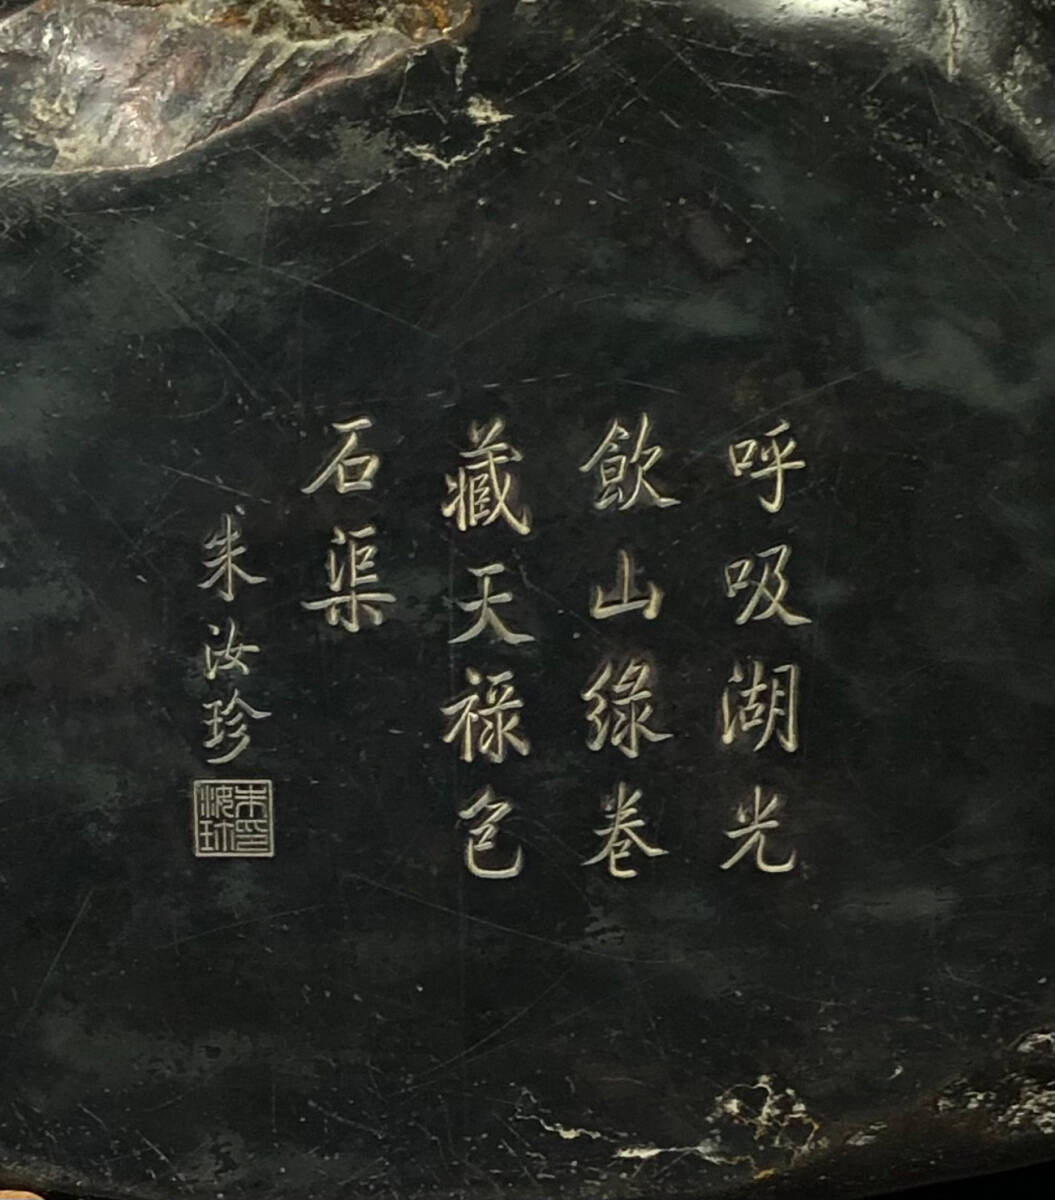 呼吸湖光
飲山綠卷
藏天祿包
石渠
朱汝珍
朱印汝珍